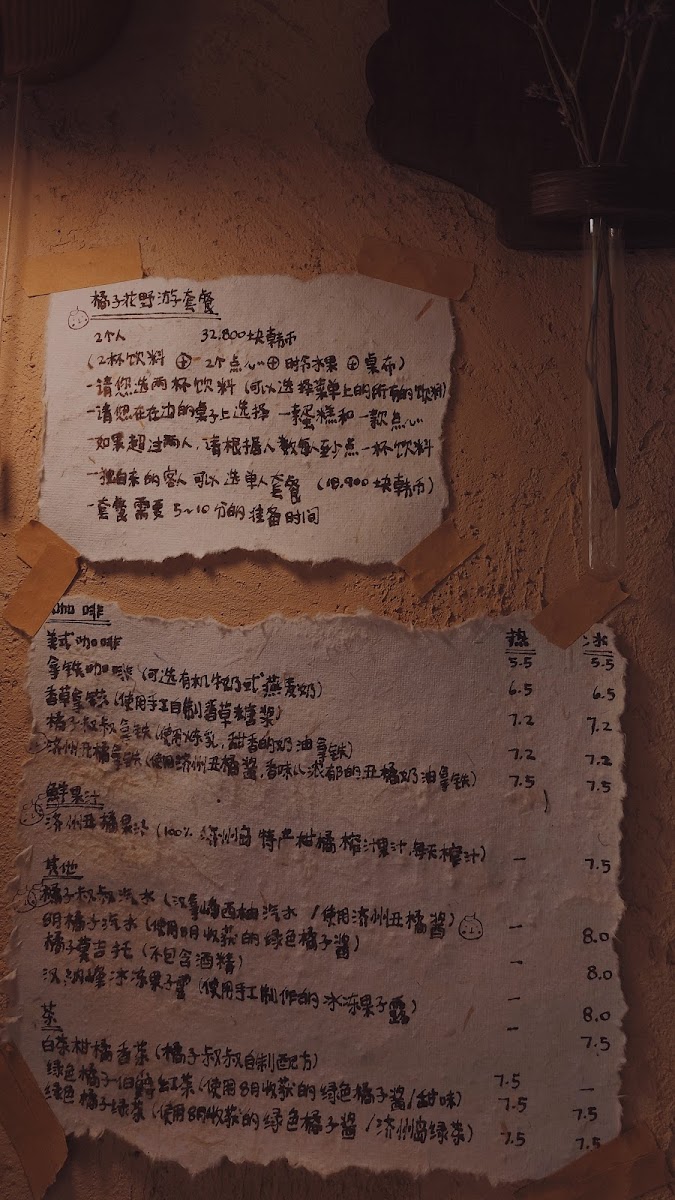 橘子花野游套餐
2个人 32,800块韩币
(2杯饮料 ⊕ 2个点心 ⊕ 时令水果 ⊕ 桌布)
-请您选两杯饮料 (可以选择菜单上的所有的饮料)
-请您在左边的桌子上选择 一款蛋糕和一款点心
-如果超过两人, 请根据人数每人至少点一杯饮料
-独自来的客人可以选单人套餐 (18,900块韩币)
-套餐需要5~10分的准备时间
咖啡 热 冰
美式咖啡 5.5 5.5
拿铁咖啡 (可选有机牛奶或燕麦奶) 6.5 6.5
香草拿铁 (使用手工自制香草糖浆) 7.2 7.2
橘子叔叔拿铁 (使用炼乳, 甜香的奶油拿铁) 7.2 7.2
济州丑橘拿铁 (使用济州丑橘酱, 香味儿浓郁的丑橘奶油拿铁) 7.5 7.5
鲜果汁
济州丑橘果汁 (100% 济州岛特产柑橘榨汁果汁, 每天榨汁) - 7.5
其他
橘子叔叔汽水 (汉拿峰西柚汽水 / 使用济州丑橘酱) - 8.0
8月橘子汽水 (使用8月收获的绿色橘子酱) - 8.0
橘子莫吉托 (不包含酒精) - 8.0
汉纳峰冰冻果子露 (使用手工制作的冰冻果子露) - 7.5
茶
白茶柑橘香茶 (橘子叔叔自制配方) 7.5 -
绿色橘子伯爵红茶 (使用8月收获的绿色橘子酱 / 甜味) 7.5 7.5
绿色橘子绿茶 (使用8月收获的绿色橘子酱 / 济州岛绿茶) 7.5 7.5